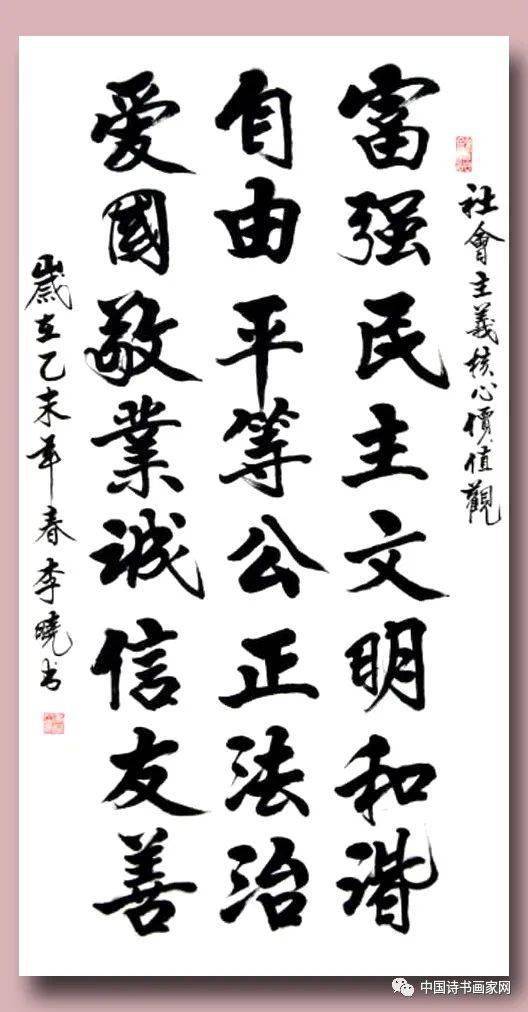 社會主義核心價值觀
富强民主文明和谐
自由平等公正法治
爱國敬業诚信友善
歲在乙未年春李曉书
中国诗书画家网